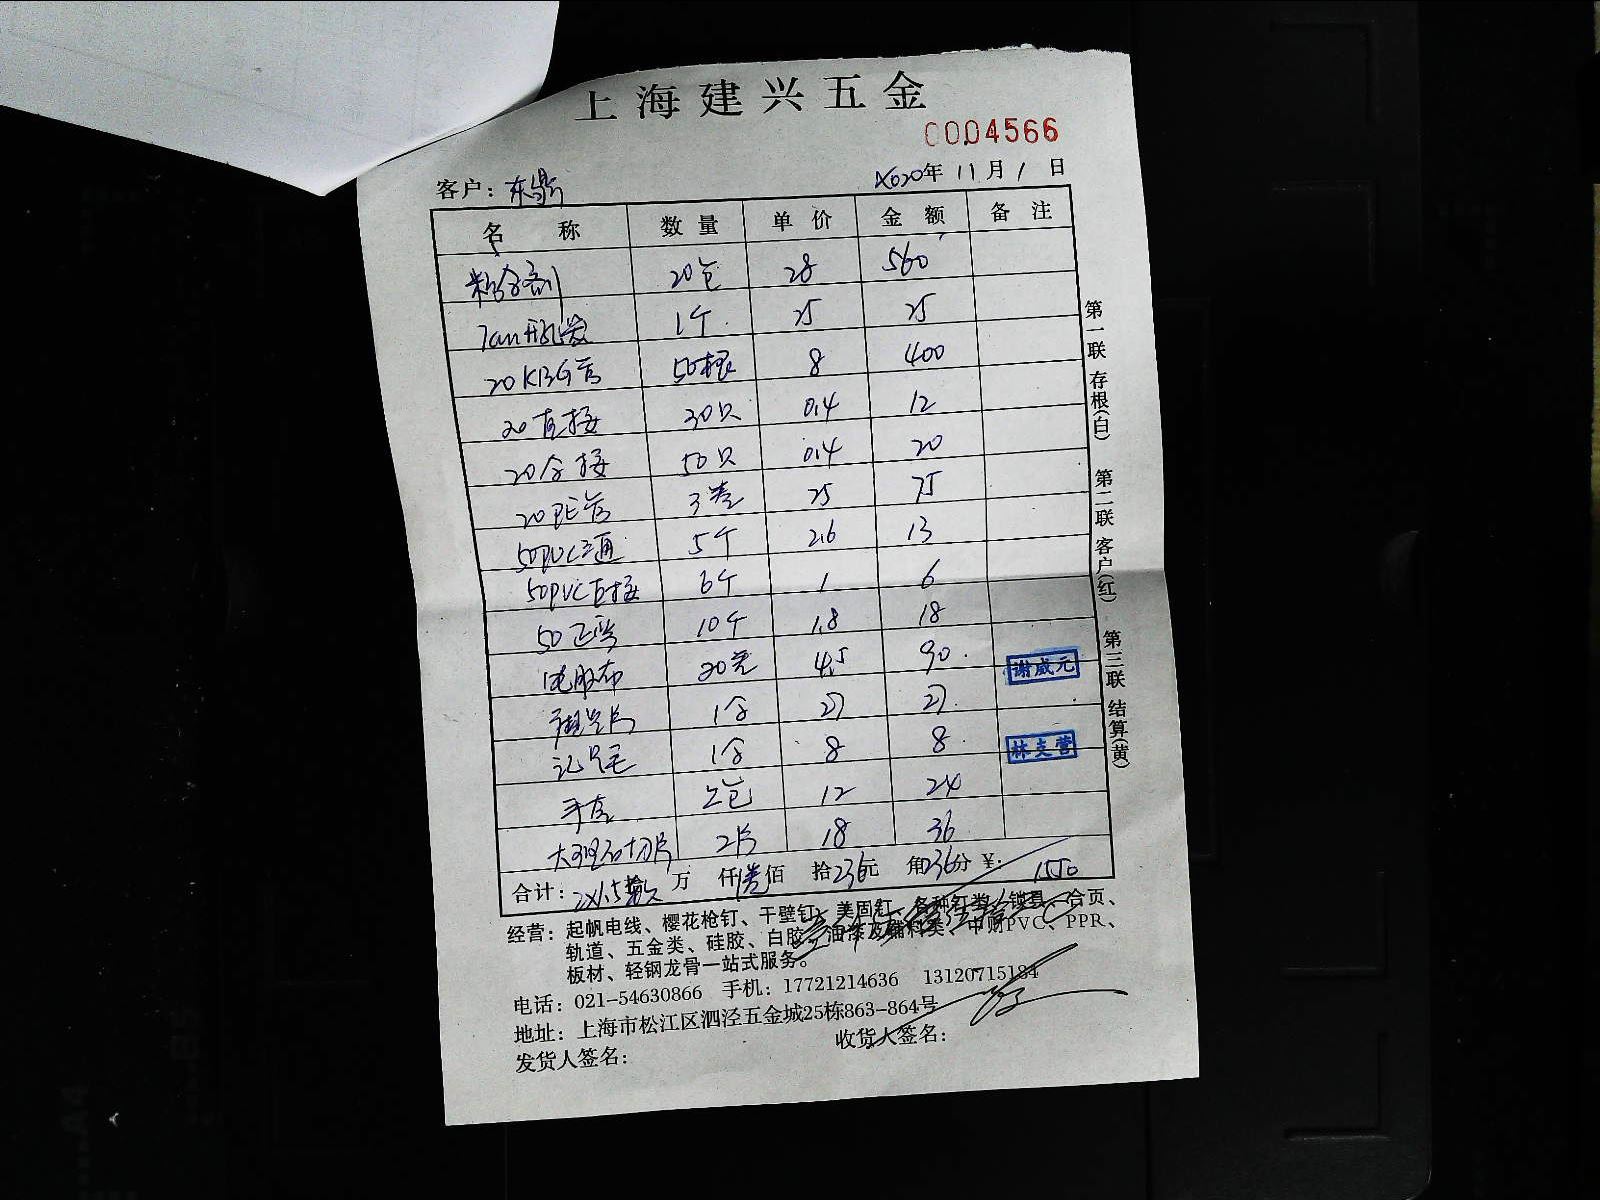 上海建兴五金
0004566
客户：东鼎 2020年 11月 1 日
名 称 数量 单价 金额 备注
粘合剂 20包 28 560
7cm开孔器 1个 25 25
20KBG管 50根 8 400
20直接 30只 0.4 12
20合接 50只 0.4 20
20PE管 3卷 25 75
50PVC三通 5个 2.6 13
50PVC直接 6个 1 6
50 10个 1.8 18
电胶布 20卷 4.5 90
1合 27 27
谢威元
记号笔 1合 8 8
林支营
手套 2包 12 24
大理石切片 2片 18 36
合计： 万 仟 佰 拾 元 角 分 ¥： 1550
经营：起帆电线、樱花枪钉、干壁钉、美固钉、各种钉类、锁具、合页、
轨道、五金类、硅胶、白胶、油漆及辅料类、中财PVC、PPR、
板材、轻钢龙骨一站式服务。
电话：021-54630866 手机：17721214636 13120715184
地址：上海市松江区泗泾五金城25栋863-864号
发货人签名： 收货人签名：
第一联 存根(白) 第二联 客户(红) 第三联 结算(黄)